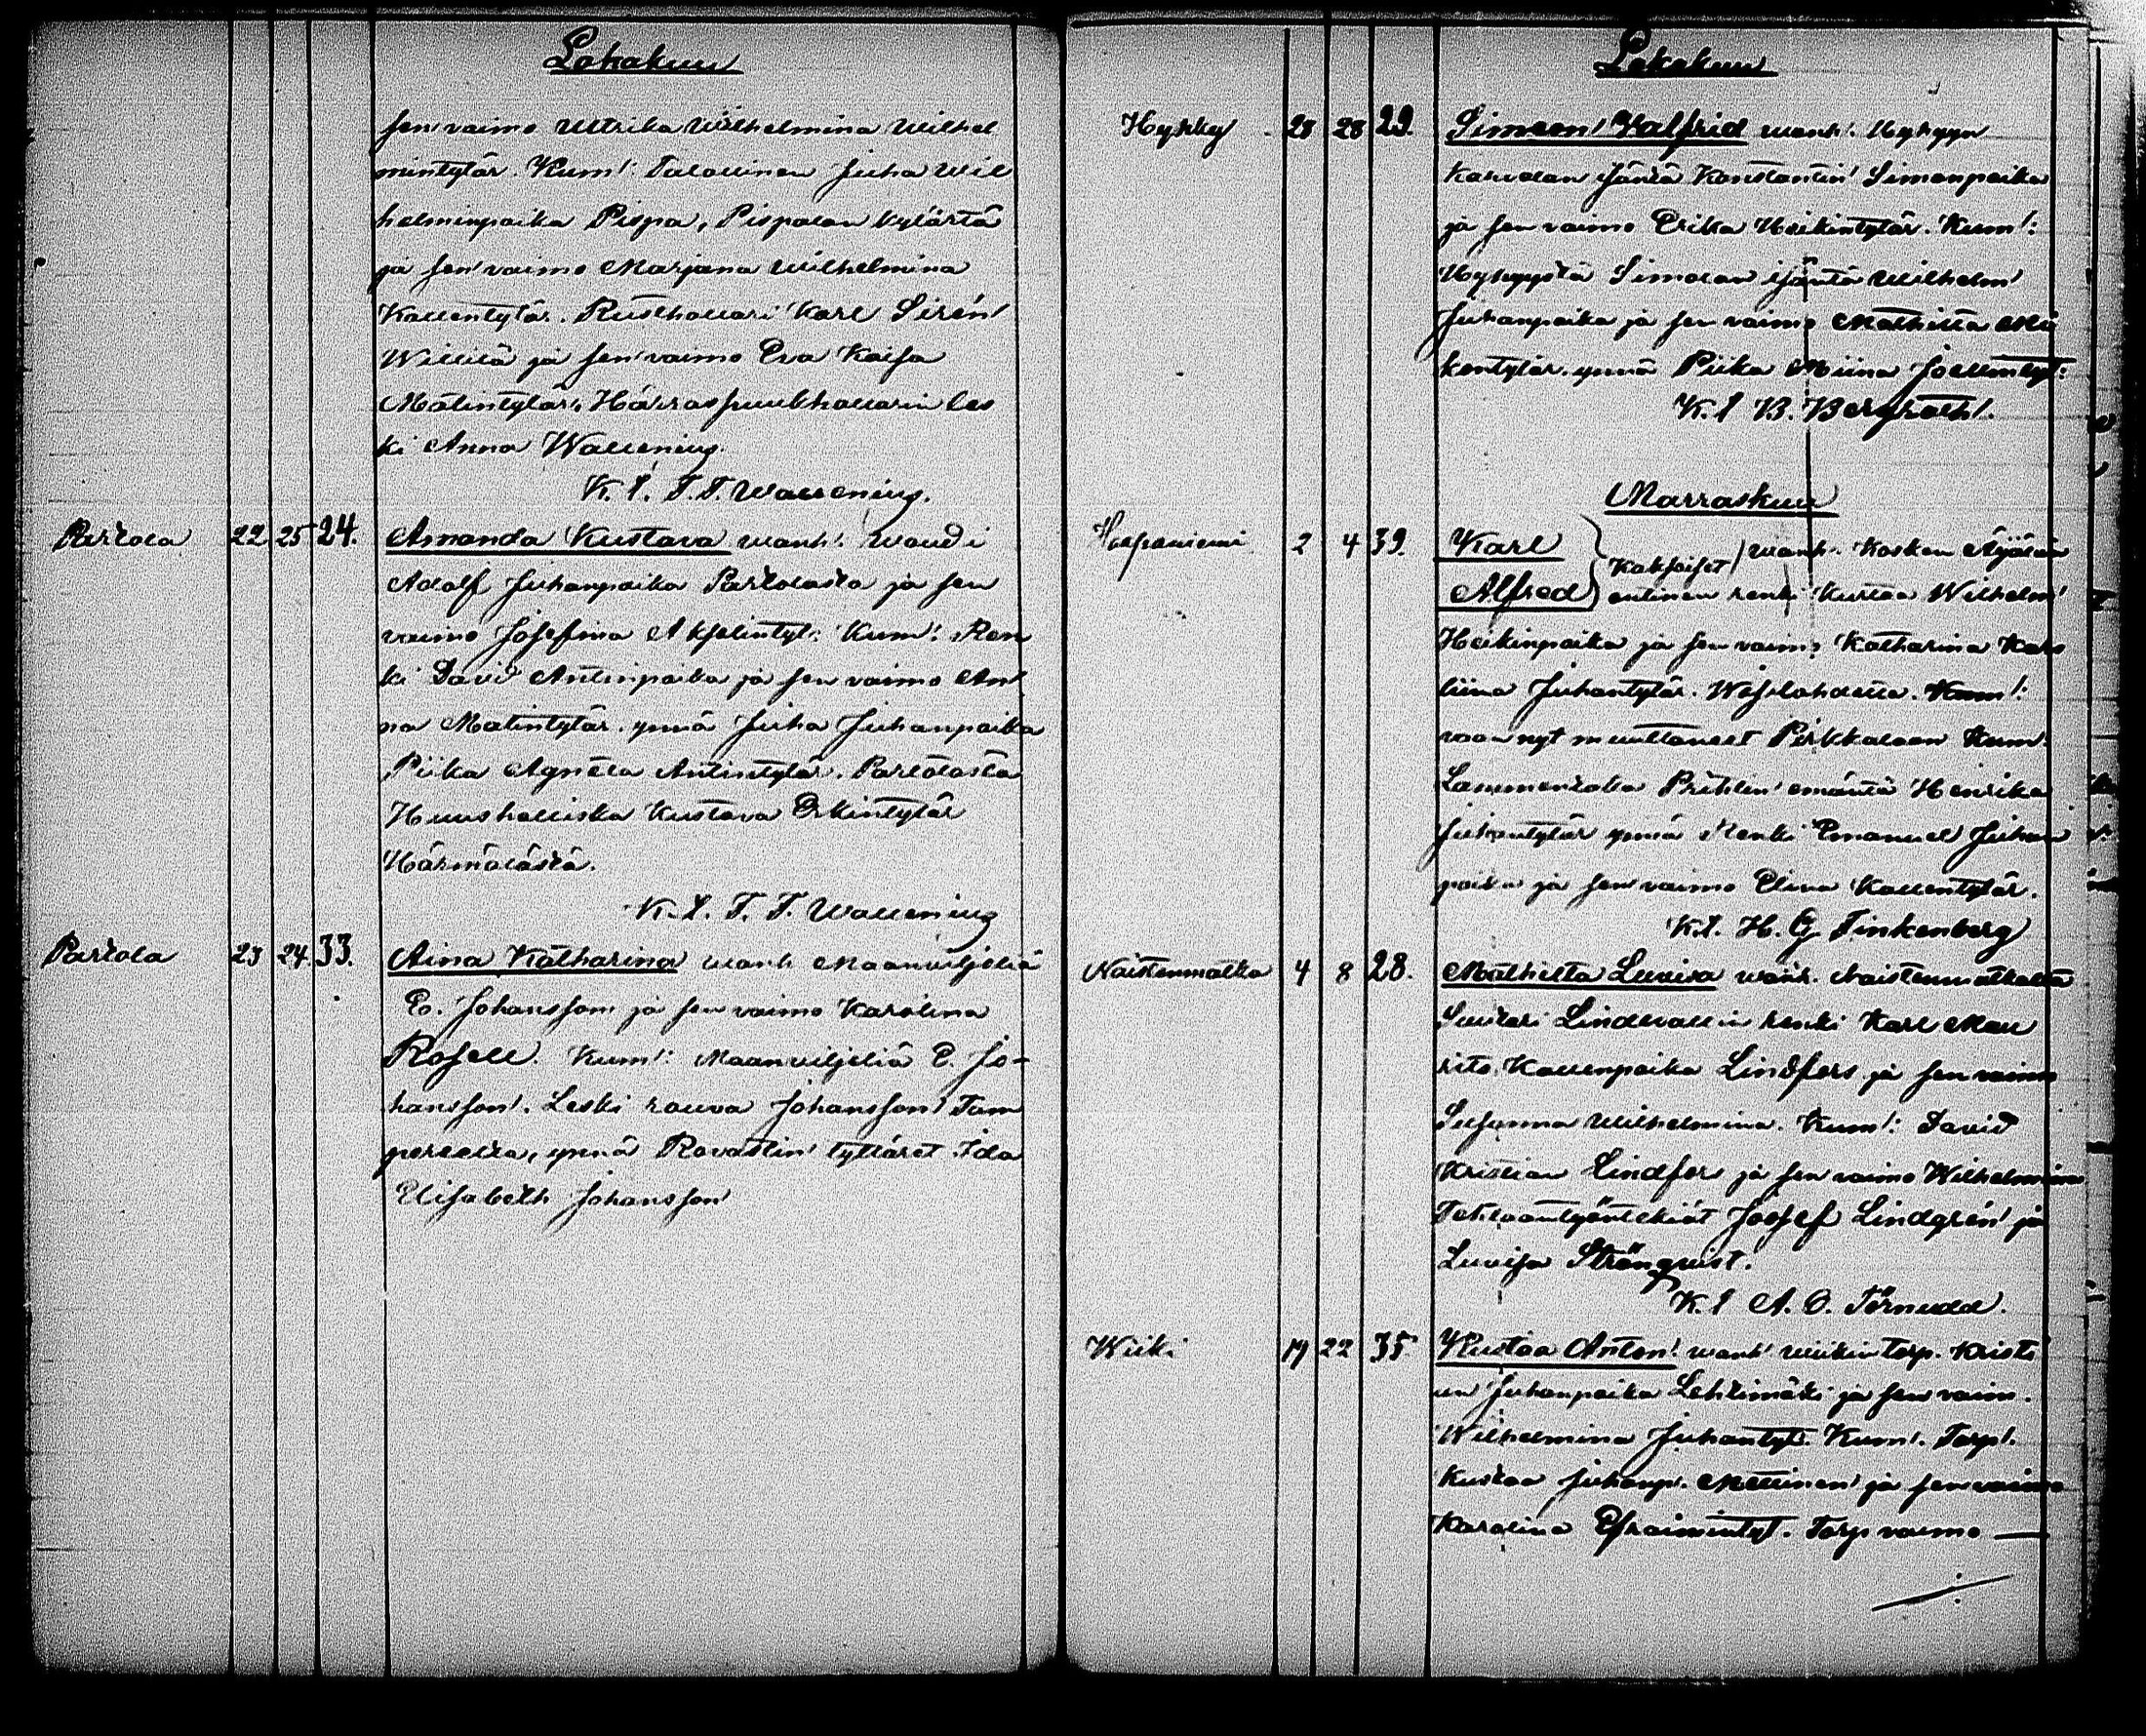 Lokakuu
sen vaimo Ulrika Wilhelmina Wilhel
mintytär. Kum: Talollinen Juha Wil
helminpoika Pispa, Pispalan kylästä
ja sen vaimo Marjana Wilhelmina
Kallentytär. Rusthollari Karl Sirén
Willilä ja sen vaimo Eva Kaisa
Matintytär. Härraspuukhollarin les
ki Anna Wallenius.
K. l. F. F. Wallenius.
Partola 22 25 24. Amanda Kustava wanh. woudi
Adolf Juhanpoika Partolasta ja sen
vaimo Josefina Akselintyt. Kum: Ren
ki David Antinpoika ja sen vaimo An
na Matintytär. ynnä Juha Juhanpoika
Piika Agneta Antintytär. Partolasta
Huushelliska Kustava Erkintytär
Härmälästä.
K. l. F. F. Wallenius
Partola 23 24. 33. Aina Katharina wanh Maanviljeliä
E. Johansson ja sen vaimo Karolina
Rosell. Kum: Maanviljeliä E. Jo-
hansson. Leski rouva Johansson Tam
pereelta, ynnä Rovastin tyttäret Ida
Elisabeth Johansson
Lokakuu
Hyhky 28 28 29. Simeon Walfrid wanh. Hyhyyn
Karvolan isäntä Konstantin Simonpoika
ja sen vaimo Erika Heikintytär. Kum:
Hyhyystä Simolan isäntä Wilhelm
Juhanpoika ja sen vaimo Mathilta Mi
kontytär. ynnä Piika Miina Joelintyt:
K. l B. Bergroth.
Marraskuu
Haapaniemi 2 4 39. Karl
Alfred Kaksoiset wanh. Kosken
entinen renki Kustaa Wilhelm
Heikinpoika ja sen vaimo Katharina Karo
liina Juhantytär. Wesilahdella. Kum:
vaan nyt muuttaneet Pirkkalaan Kum:
Lammenrolla emäntä Henrika
Juhantytär ynnä Renki Emanuel Juhan
poika ja sen vaimo Elina Kallentytär.
K.l. H. G. Finkenberg
Naistenmatka 4 8 28. Mathilta Luvisa wanh. Naistenmatkalta
Suutari Lindevallin renki Karl Mau
rits Kallenpoika Lindfors ja sen vaimo
Susanna Wilhelmina. Kum: David
Kristian Lindfors ja sen vaimo Wilhelmina
Tehtaantyöntekiät Josef Lindgrén ja
Luvisa Strönqvist.
K. l A. O. Törnudd.
Wiiki 19 22 35 Kustaa Anton wanh wiikin torp. Kristi
an Juhanpoika Lehtimäki ja sen vaim.
Wilhelmina Juhantyt. Kum. Torp.
Kustaa Juhanp. Mettinen ja sen vaimo
Karolina Efraimintyt. Torp vaimo —